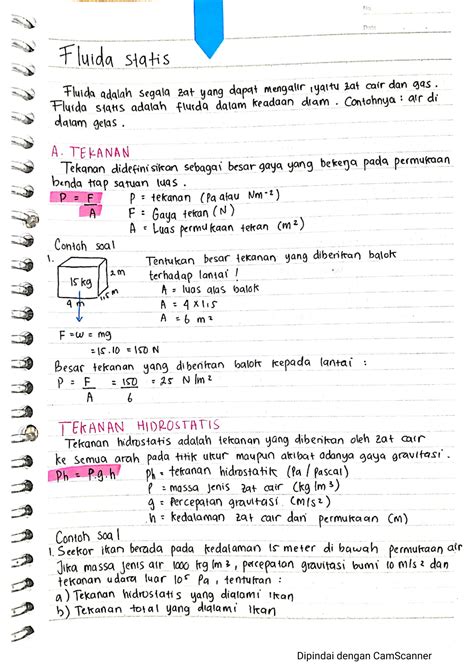 No.
Date
Fluida statis
Fluida adalah segala zat yang dapat mengalir, yaitu zat cair dan gas.
Fluida statis adalah fluida dalam keadaan diam. Contohnya : air di
dalam gelas.
A. TEKANAN
Tekanan didefinisikan sebagai besar gaya yang bekerja pada permukaan
benda tiap satuan luas.
P = F/A P = tekanan (Pa atau Nm⁻²)
F = Gaya tekan (N)
A = Luas permukaan tekan (m²)
Contoh soal
1. Tentukan besar tekanan yang diberikan balok
terhadap lantai!
15 kg 2 m 1,5 m 4 m
A = luas alas balok
A = 4 x 1,5
A = 6 m²
F = w = mg
= 15.10 = 150 N
Besar tekanan yang diberikan balok kepada lantai :
P = F/A = 150/6 = 25 N/m²
TEKANAN HIDROSTATIS
Tekanan hidrostatis adalah tekanan yang diberikan oleh zat cair
ke semua arah pada titik ukur maupun akibat adanya gaya gravitasi.
Ph = ρ.g.h Ph = tekanan hidrostatik (Pa / Pascal)
ρ = massa jenis zat cair (kg/m³)
g = percepatan gravitasi (m/s²)
h = kedalaman zat cair dari permukaan (m)
Contoh soal
1. Seekor ikan berada pada kedalaman 15 meter di bawah permukaan air
Jika massa jenis air 1000 kg/m³, percepatan gravitasi bumi 10 m/s² dan
tekanan udara luar 10⁵ Pa, tentukan :
a) Tekanan hidrostatis yang dialami ikan
b) Tekanan total yang dialami ikan
Dipindai dengan CamScanner